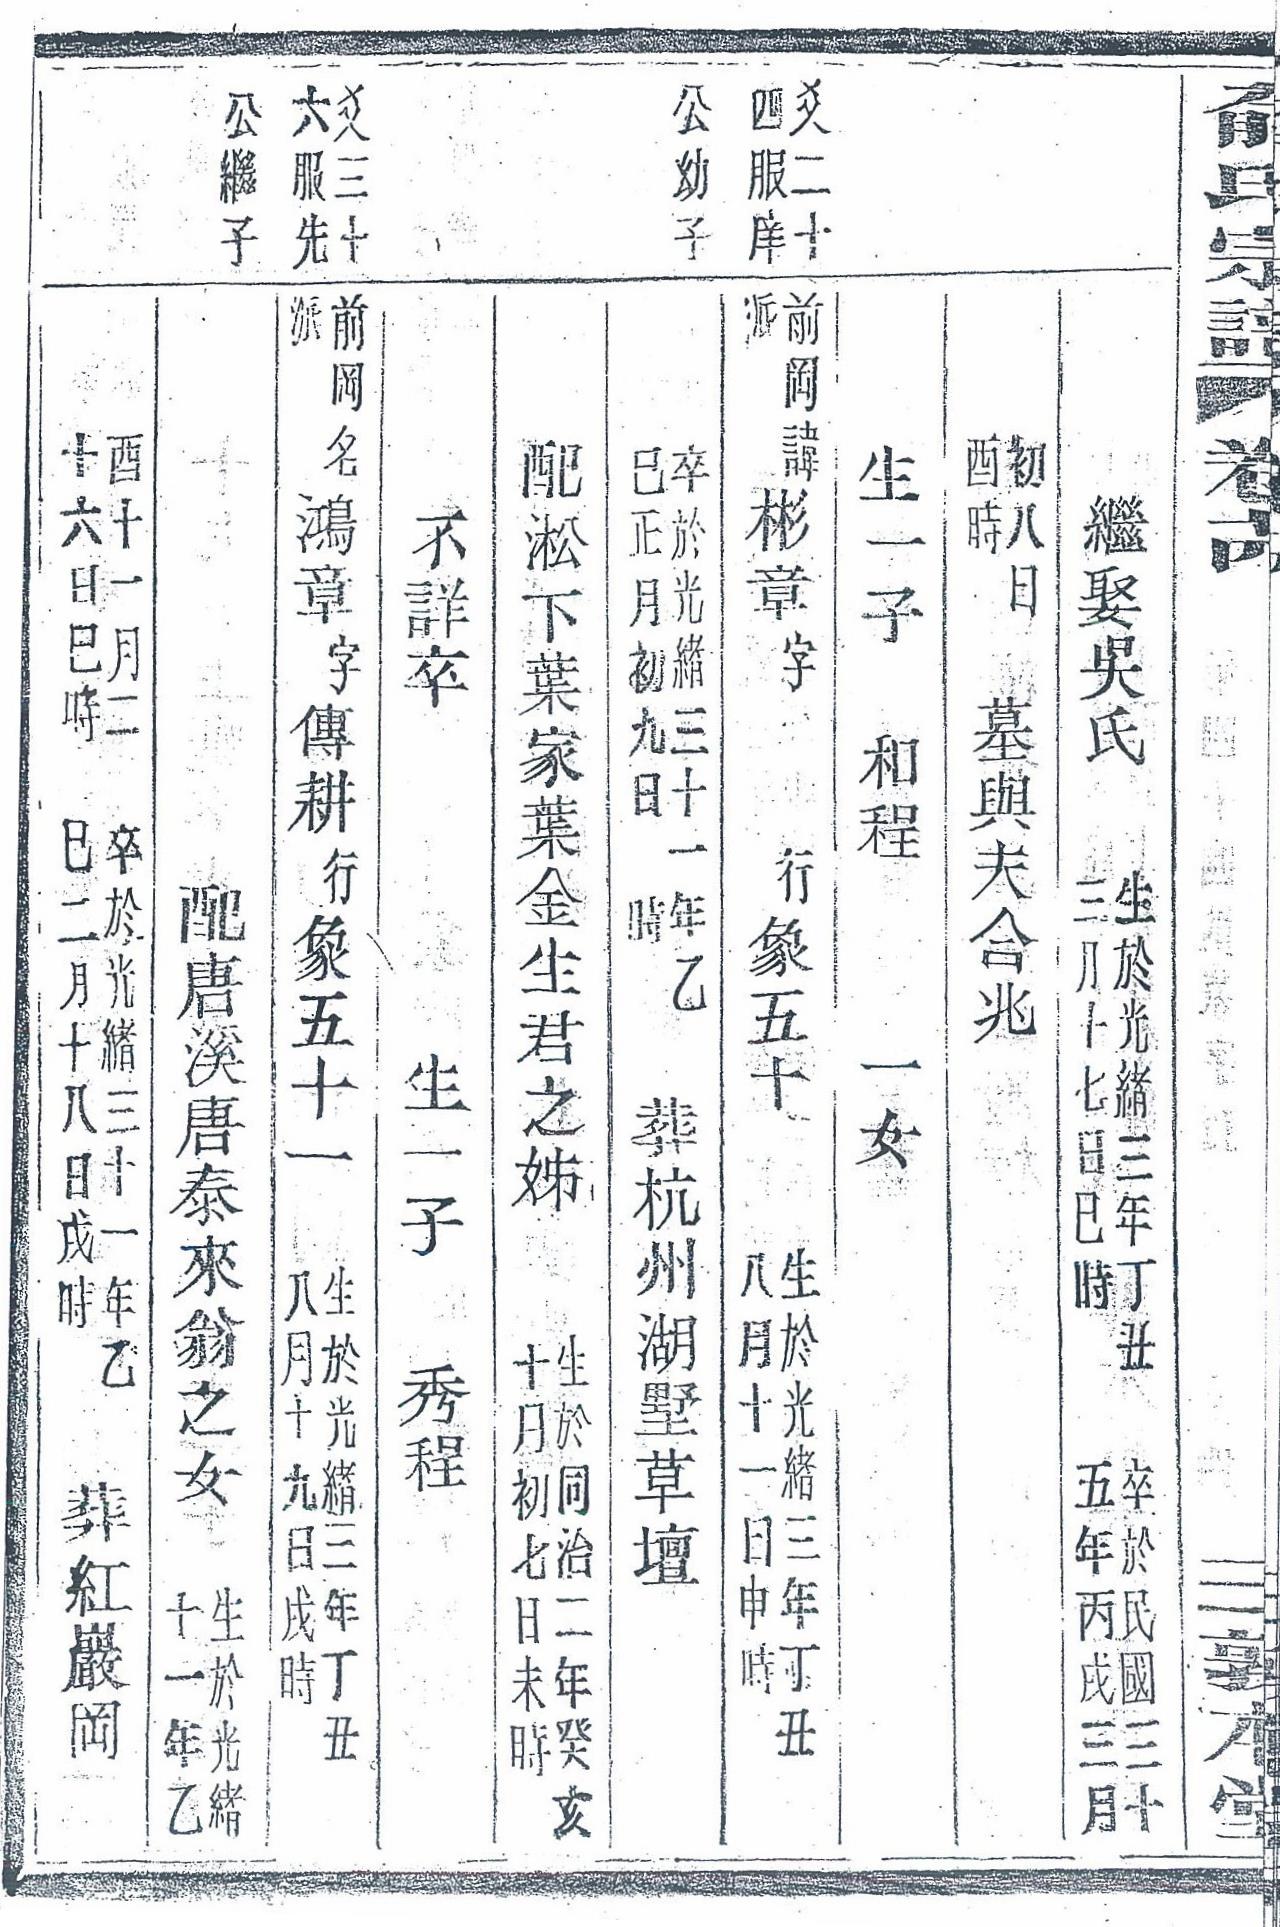 俞氏宗譜
卷六
繼娶吳氏
生於光緒三年丁丑
三月十七日巳時
卒於民國三十
五年丙戌三月
初八日
酉時
墓與夫合兆
生一子 和程 一女
炙二十
四服庠
公幼子
前岡諱
派
彬章字 行象五十
生於光緒三年丁丑
八月十一日申時
卒於光緒三十一年乙
巳正月初九日 時
葬杭州湖墅草壇
配淞下葉家葉金生君之姊
生於同治二年癸亥
十月初七日未時
不詳卒 生一子 秀程
炙三十
六服先
公繼子
前岡名
派
鴻章字傳耕行象五十一
生於光緒三年丁丑
八月十九日戌時
配唐溪唐泰來翁之女
生於光緒
十一年乙
酉十一月二
十六日巳時
卒於光緒三十一年乙
巳二月十八日戌時
葬紅巖岡